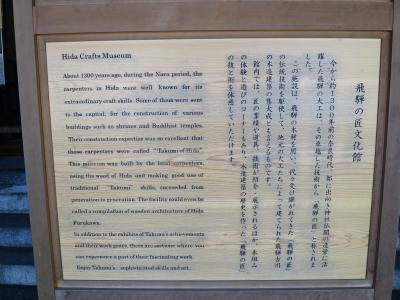 Hida Crafts Museum
About 1300 years ago, during the Nara period, the
carpenters in Hida were well known for its
extraordinary craft skills. Some of them were sent
to the capital, for the construction of various
buildings such as shrines and Buddhist temples.
Their construction expertise was so excellent that
those carpenters were called "Takumi of Hida".
This museum was built by the local carpenters,
using the wood of Hida and making good use of
traditional "Takumi" skills, succeeded from
generation to generation. The facility could even be
called a compilation of wooden architecture of Hida
Furukawa.
In addition to the exhibits of Takumi's achievements
and their work gears, there are sections where you
can experience a part of their fascinating work.
Enjoy Takumi's sophisticated skills and art.
飛騨の匠文化館
今から約1300年前の奈良時代、都に出向き神社仏閣の造営に活
躍した飛騨の大工は、その卓越した技術から「飛騨の匠」と称されま
した。
この施設は、飛騨の木材を用い、代々受け継がれてきた「飛騨の匠」
の伝統技術を駆使して、地元の大工たちによって建てられた飛騨古川
の木造建築の集大成とも言えるものです。
館内では、匠の業績や道具、技術が紹介・展示されるほか、木組み
の体験と遊びのコーナーもあり、木造建築の歴史を作った「飛騨の匠」
の技と術を体感していただけます。